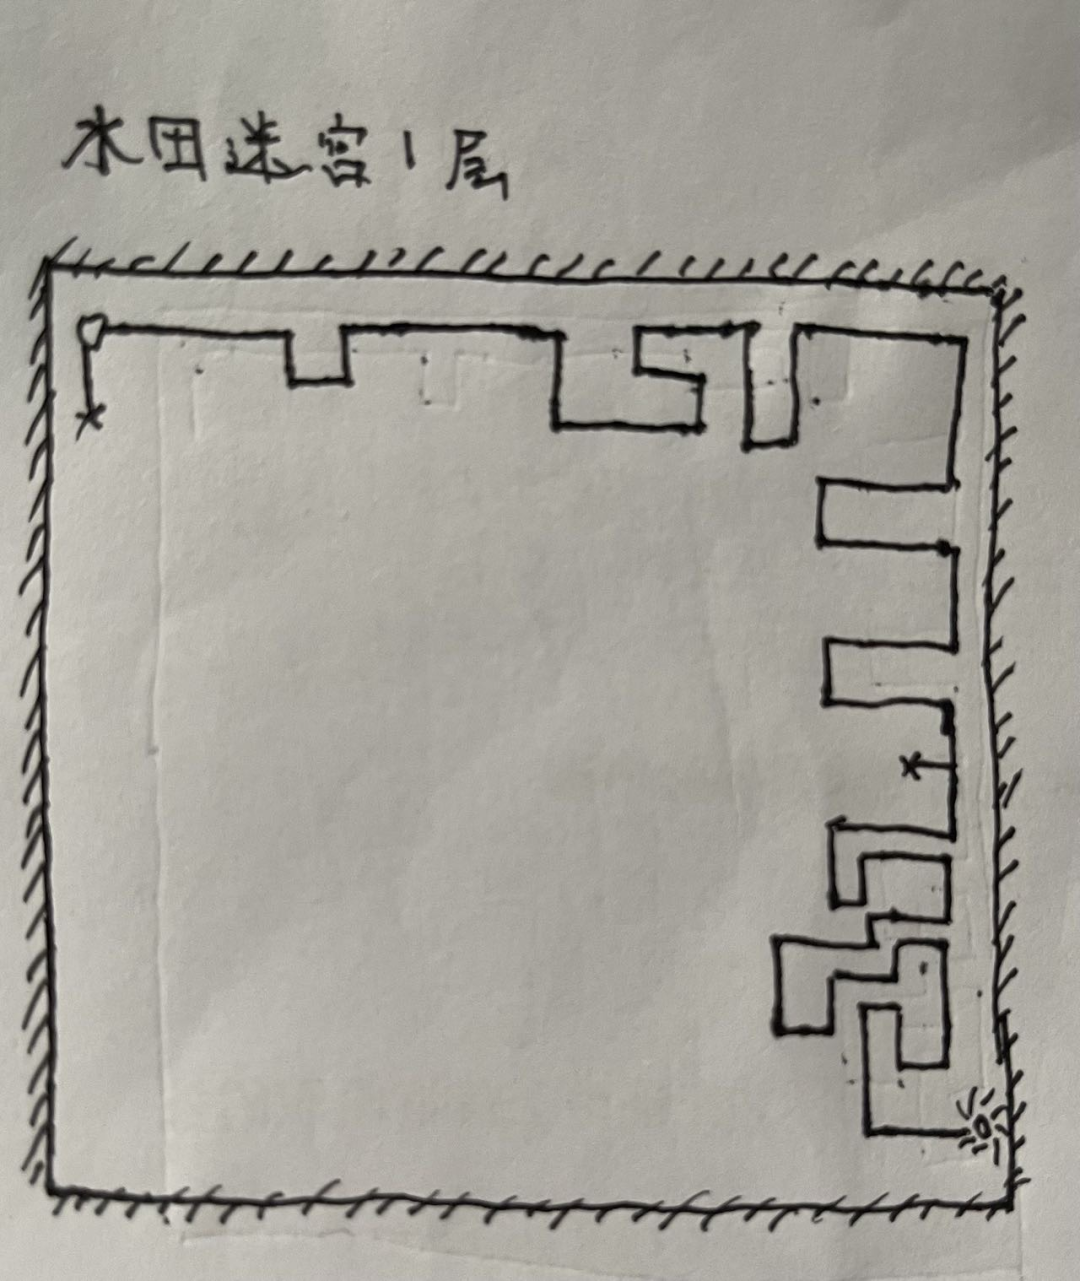 水田迷宫1层